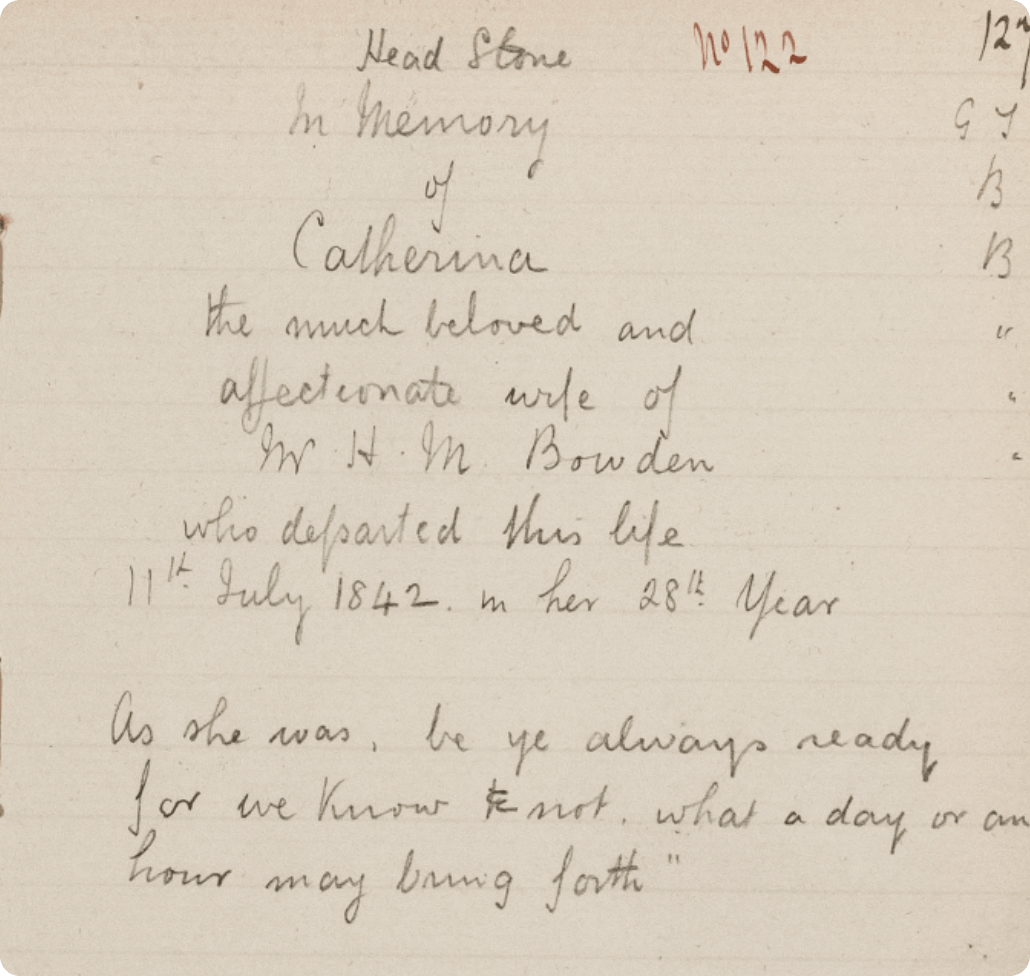 Head Stone No 122
In Memory G T
of B
Catherina B
the much beloved and "
affectionate wife of "
Mr H. M. Bowden "
who departed this life
11th July 1842. in her 28th Year
As she was, be ye always ready
for we Know not. what a day or an
hour may bring forth"